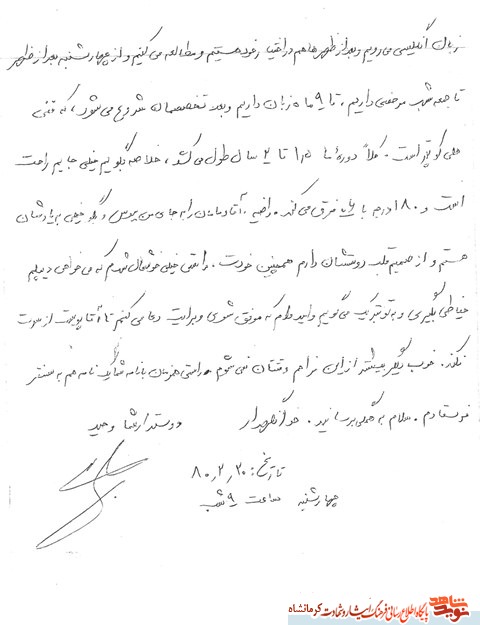 زبان انگلیسی می رویم و بعد از ظهرها هم در اختیار خود هستیم و مطالعه می کنیم و از چهارشنبه بعد از ظهر
تا جمعه شب مرخصی داریم، تا ۹ ماه زبان داریم و بعد تخصصمان شروع می شود، که فنی
خیلی کوتاهتر است. کلاً دورهٔ ما ۱،۵ تا ۲ سال طول می کشد، خلاصه بگویم خیلی جایم راحت
است و ۱۸۰ درجه با فرق می کند. راضیه، آقا و مامان را به جای من ببوس و بگو خیلی به یادشان
هستم و از صمیم قلب دوستشان دارم همچنین خودت. راستی خیلی خوشحال شدم که می خواهی دیپلم
خیاطی بگیری و به تو تبریک می گویم و امیدوارم که موفق شوی و برایت دعا می کنم تا پوستت از صورت
نکند. خوب دیگر بیشتر از این مزاحم وقتتان نمی شوم. راستی همزمان با نامه شما یک نامه هم به سنقر
فرستادم. سلام به همگی برسانید. خدانگهدار دوستدار شما وحید
تاریخ: ۸۰،۲،۲۰
چهارشنبه ساعت ۹ شب
نوید شاهد
پایگاه اطلاع رسانی فرهنگ ایثار و شهادت کرمانشاه